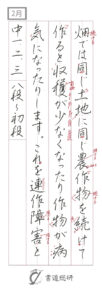 2月
畑では同じ土地に同じ農作物を続けて
作ると収穫が少なくなったり作物が病
気になったりします。これを連作障害と
中一二三 八段〜初段
書道総研